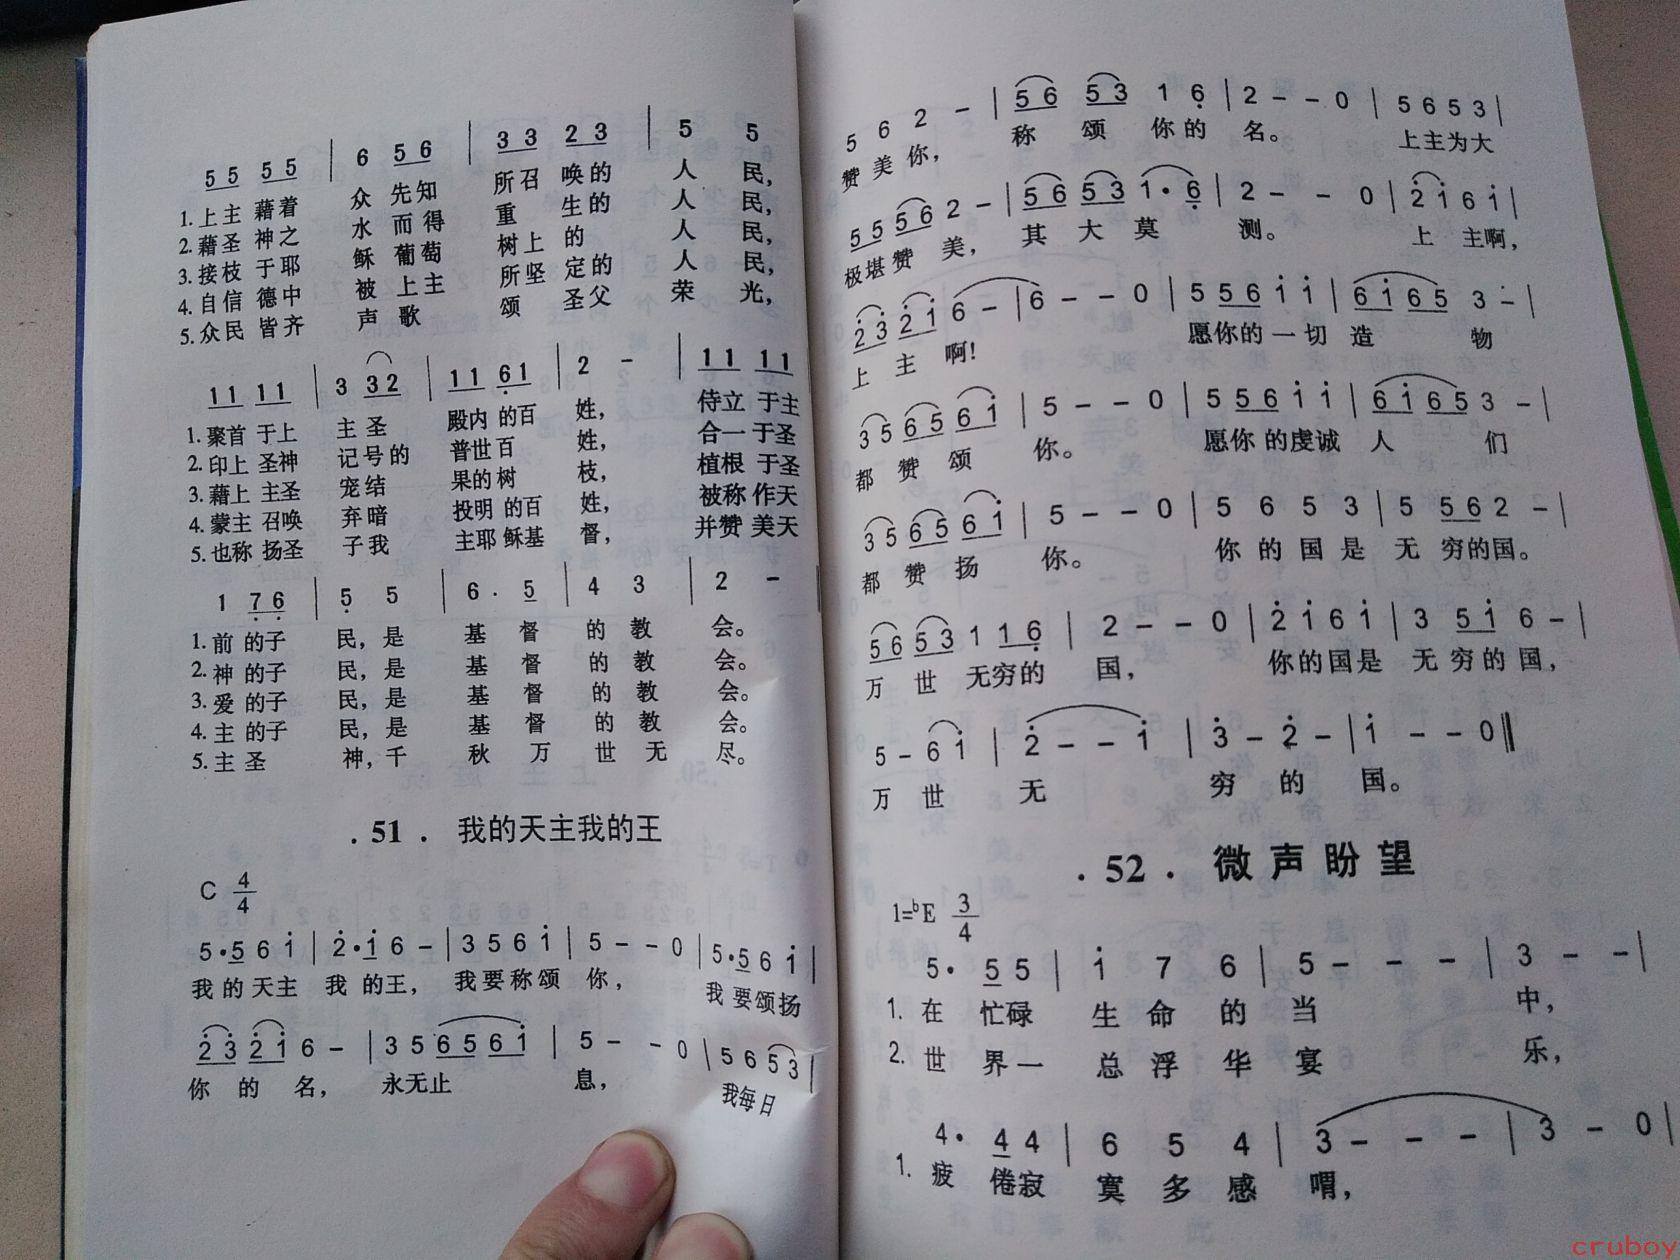 5 5 5 5 | 6 5 6 | 3 3 2 3 | 5 5
1. 上主 藉着 众 先知 所召 唤的 人 民,
2. 藉圣 神之 水 而得 重 生的 人 民,
3. 接枝 于耶 稣 葡萄 树上 的 人 民,
4. 自信 德中 被 上主 所坚 定的 人 民,
5. 众民 皆齐 声 歌 颂 圣父 荣 光,
1 1 1 1 | 3 3 2 | 1 1 6̣ 1 | 2 - | 1 1 1 1
1. 聚首 于上 主 圣 殿内 的百 姓, 侍立 于主
2. 印上 圣神 记号的 普世百 姓, 合一 于圣
3. 藉上 主圣 宠结 果的树 枝, 植根 于圣
4. 蒙主 召唤 弃暗 投明 的百 姓, 被称 作天
5. 也称 扬圣 子我 主耶 稣基 督, 并赞 美天
1 7̣ 6̣ | 5̣ 5 | 6 . 5 | 4 3 | 2 -
1. 前 的子 民, 是 基 督 的 教 会。
2. 神 的子 民, 是 基 督 的 教 会。
3. 爱 的子 民, 是 基 督 的 教 会。
4. 主 的子 民, 是 基 督 的 教 会。
5. 主 圣 神, 千 秋 万 世 无 尽。
. 51 . 我的天主我的王
C 4/4
5 · 5 6 i | 2̇ · i 6 - | 3 5 6 i | 5 - - 0 | 5 · 5 6 i |
我 的 天主 我 的王, 我要称颂 你, 我要颂扬
2̇ 3̇ 2̇ i 6 - | 3 5 6 5 6 i | 5 - - 0 | 5 6 5 3 |
你 的 名, 永无止 息, 我每日
5 6 2 - | 5 6 5 3 1 6̣ | 2 - - 0 | 5 6 5 3 |
赞 美 你, 称 颂 你 的 名。 上主为大
5 5 5 6 2 - | 5 6 5 3 1 · 6̣ | 2 - - 0 | 2̇ i 6 i |
极堪赞 美, 其 大 莫 测。 上 主啊,
2̇ 3̇ 2̇ i 6 - | 6 - - 0 | 5 5 6 i i | 6 i 6 5 3 - |
上 主 啊! 愿你的 一切 造 物
3 5 6 5 6 i | 5 - - 0 | 5 5 6 i i | 6 i 6 5 3 - |
都 赞 颂 你。 愿你 的虔诚 人 们
3 5 6 5 6 i | 5 - - 0 | 5 6 5 3 | 5 5 6 2 - |
都 赞 扬 你。 你 的 国 是 无 穷的国。
5 6 5 3 1 1 6̣ | 2 - - 0 | 2̇ i 6 i | 3 5 i 6 - |
万 世 无穷的 国, 你的国是 无 穷的国,
5 - 6 i | 2̇ - - i | 3̇ - 2̇ - | i - - 0 ‖
万 世 无 穷 的 国。
. 52 . 微声盼望
1=ᵇE 3/4
5 · 5 5 | i 7 6 | 5 - - - | 3 - - |
1. 在 忙碌 生 命 的 当 中,
2. 世 界一 总 浮 华 宴 乐,
4 · 4 4 | 6 5 4 | 3 - - - | 3 - 0 |
1. 疲 倦寂 寞 多 感 喟,
cruboy